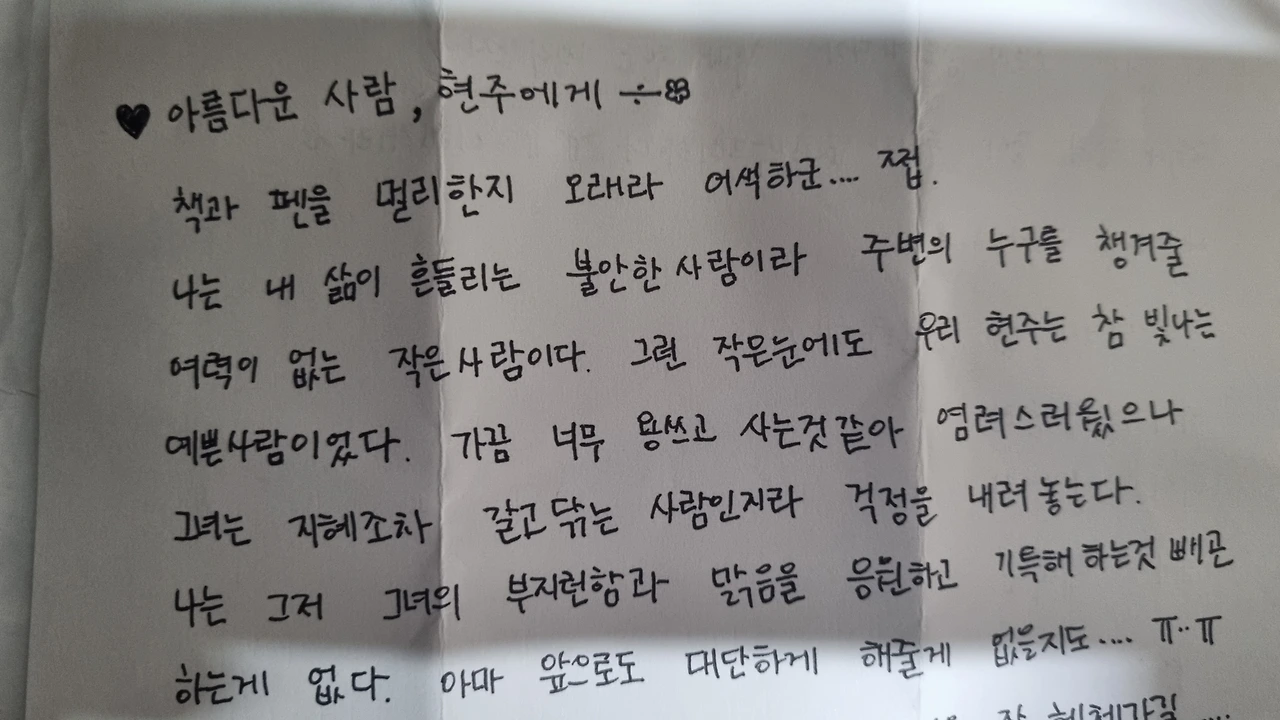 ♥ 아름다운 사람, 현주에게 ÷
책과 펜을 멀리한지 오래라 어색하군.... 쩝.
나는 내 삶이 흔들리는 불안한 사람이라 주변의 누구를 챙겨줄
여력이 없는 작은 사람이다. 그런 작은눈에도 우리 현주는 참 빛나는
예쁜사람이었다. 가끔 너무 용쓰고 사는것 같아 염려스러웠으나
그녀는 지혜조차 갈고닦는 사람인지라 걱정을 내려놓는다.
나는 그저 그녀의 부지런함과 맑음을 응원하고 기특해 하는것 빼곤
하는게 없다. 아마 앞으로도 대단하게 해줄게 없을지도.... ㅠ..ㅠ